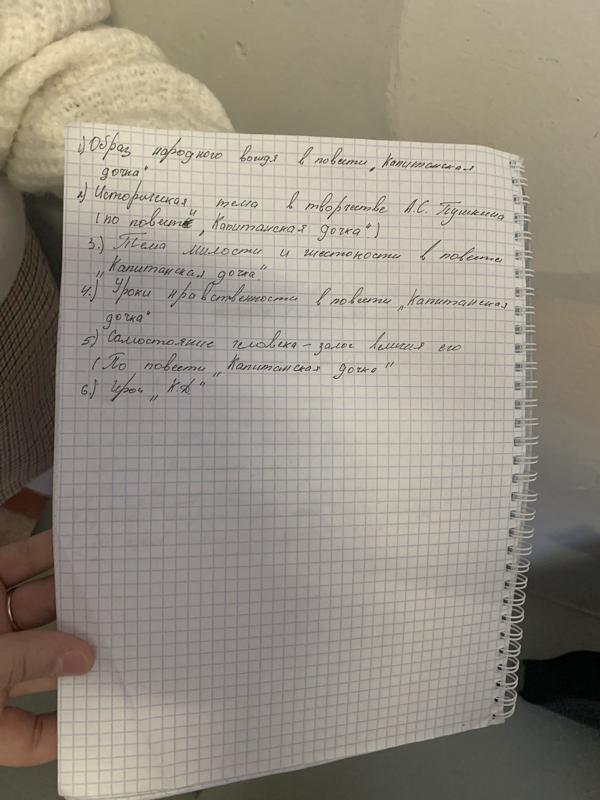 1) Образ народного вождя в повести „Капитанская
дочка"
2) Историческая тема в творчестве А.С. Пушкина
(по повести „Капитанская дочка")
3.) Тема милости и жестокости в повести
„Капитанская дочка"
4.) Уроки нравственности в повести „Капитанская
дочка"
5) Самостояние человека – залог величия его
(По повести „Капитанская дочка"
6.) Герои „К.Д."